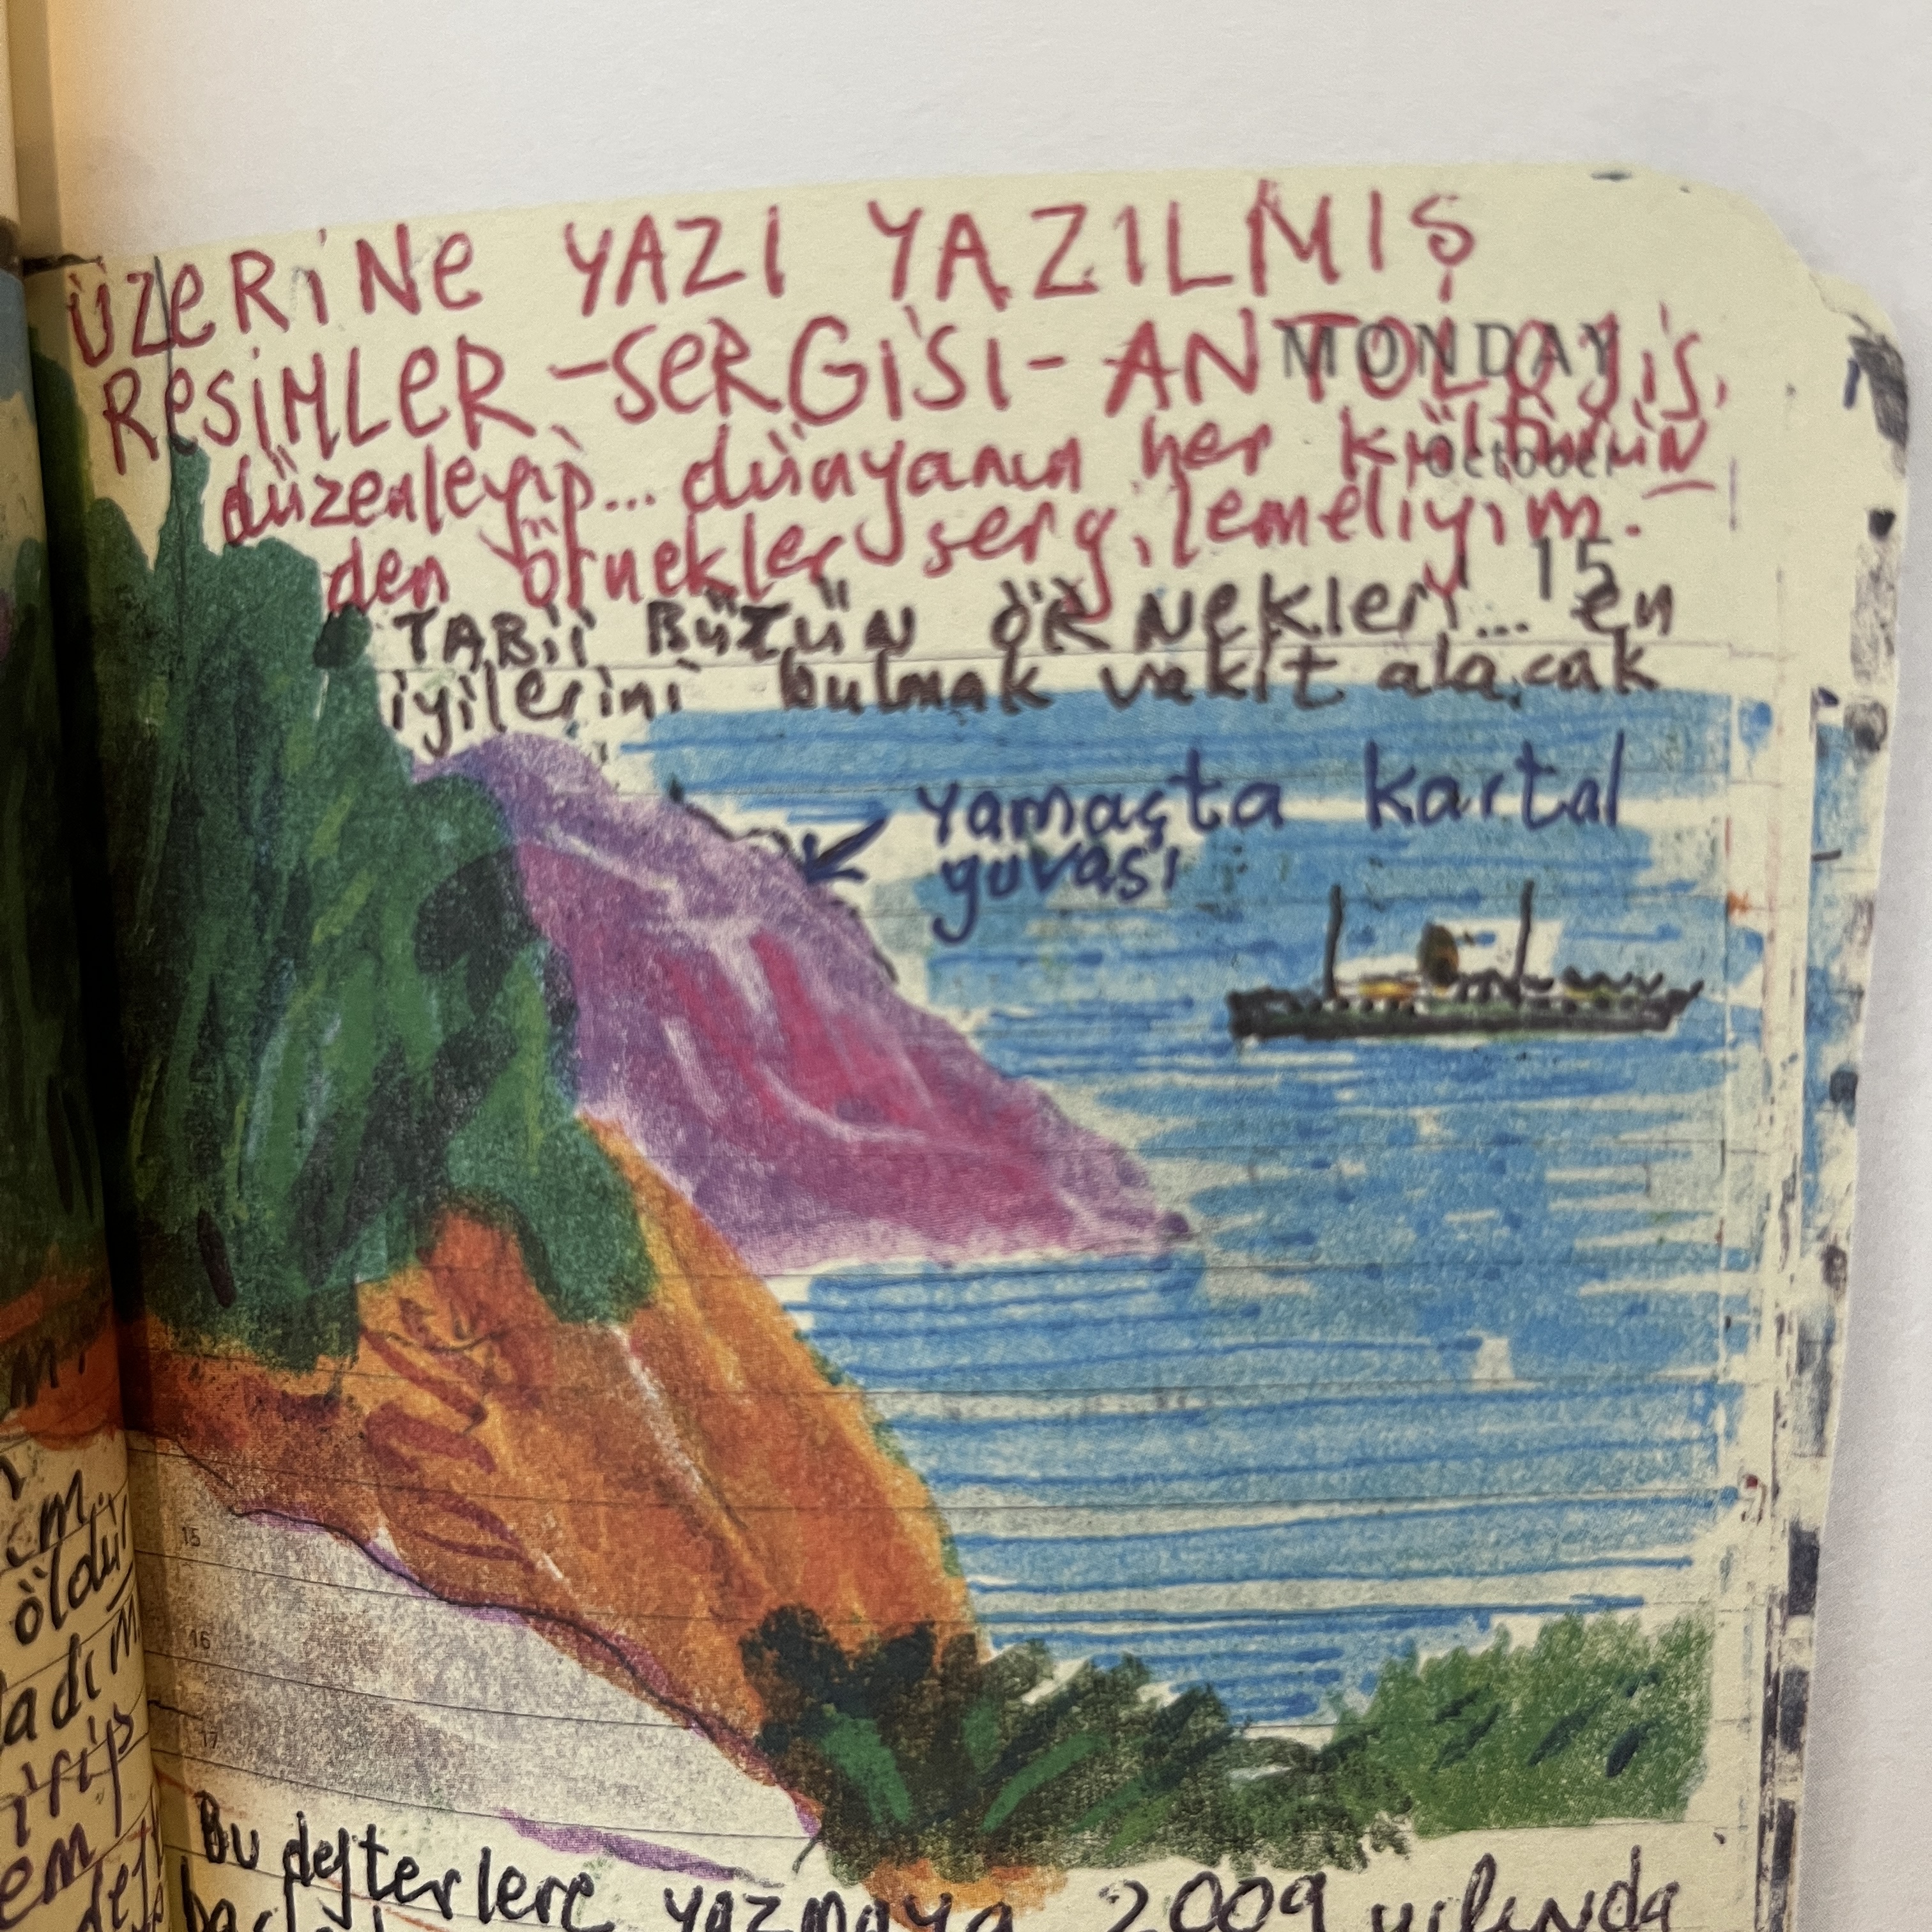 ÜZERİNE YAZI YAZILMIŞ
RESİMLER -SERGİSİ- ANTOLOJİSİ
MONDAY
düzenleyip... dünyanın her kültürün
October
den örnekler sergilemeliyim.
15
TABİİ BÜTÜN ÖRNEKLERİ... en
iyilerini bulmak vakit alacak
yamaçta kartal
yuvası
15
öldü
16
ladım
17
irip
Bu defterlere yazmaya 2009 yılında